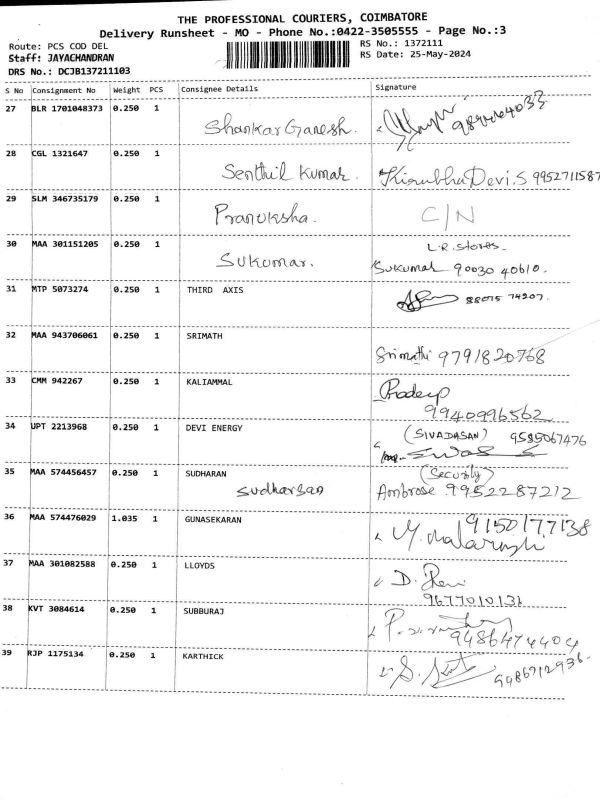 THE PROFESSIONAL COURIERS, COIMBATORE
Delivery Runsheet - MO - Phone No.:0422-3505555 - Page No.:3
Route: PCS COD DEL
RS No.: 1372111
Staff: JAYACHANDRAN
RS Date: 25-May-2024
DRS No.: DCJB137211103
S No Consignment No Weight PCS Consignee Details Signature
27 BLR 1701048373 0.250 1
Shankar Ganesh.
28 CGL 1321647 0.250 1
Senthil Kumar. Kirubha Devi.S 9952711587
29 SLM 346735179 0.250 1
Pranuksha. C/N
30 MAA 301151205 0.250 1 L.R. Stores-
Sukumar. Sukumar 90030 40610.
31 MTP 5073274 0.250 1 THIRD AXIS
88075 74207.
32 MAA 943706061 0.250 1 SRIMATH
Srimathi 9791820768
33 CMM 942267 0.250 1 KALIAMMAL Pradeep
9940996562
34 UPT 2213968 0.250 1 DEVI ENERGY (SIVADASAN) 9585067476
35 MAA 574456457 0.250 1 SUDHARAN (Security)
Sudharsan Ambrose 9952287212
36 MAA 574476029 1.035 1 GUNASEKARAN 9150177138
37 MAA 301082588 0.250 1 LLOYDS
9677010131
38 KVT 3084614 0.250 1 SUBBURAJ
9486474404
39 RJP 1175134 0.250 1 KARTHICK
9486712936-